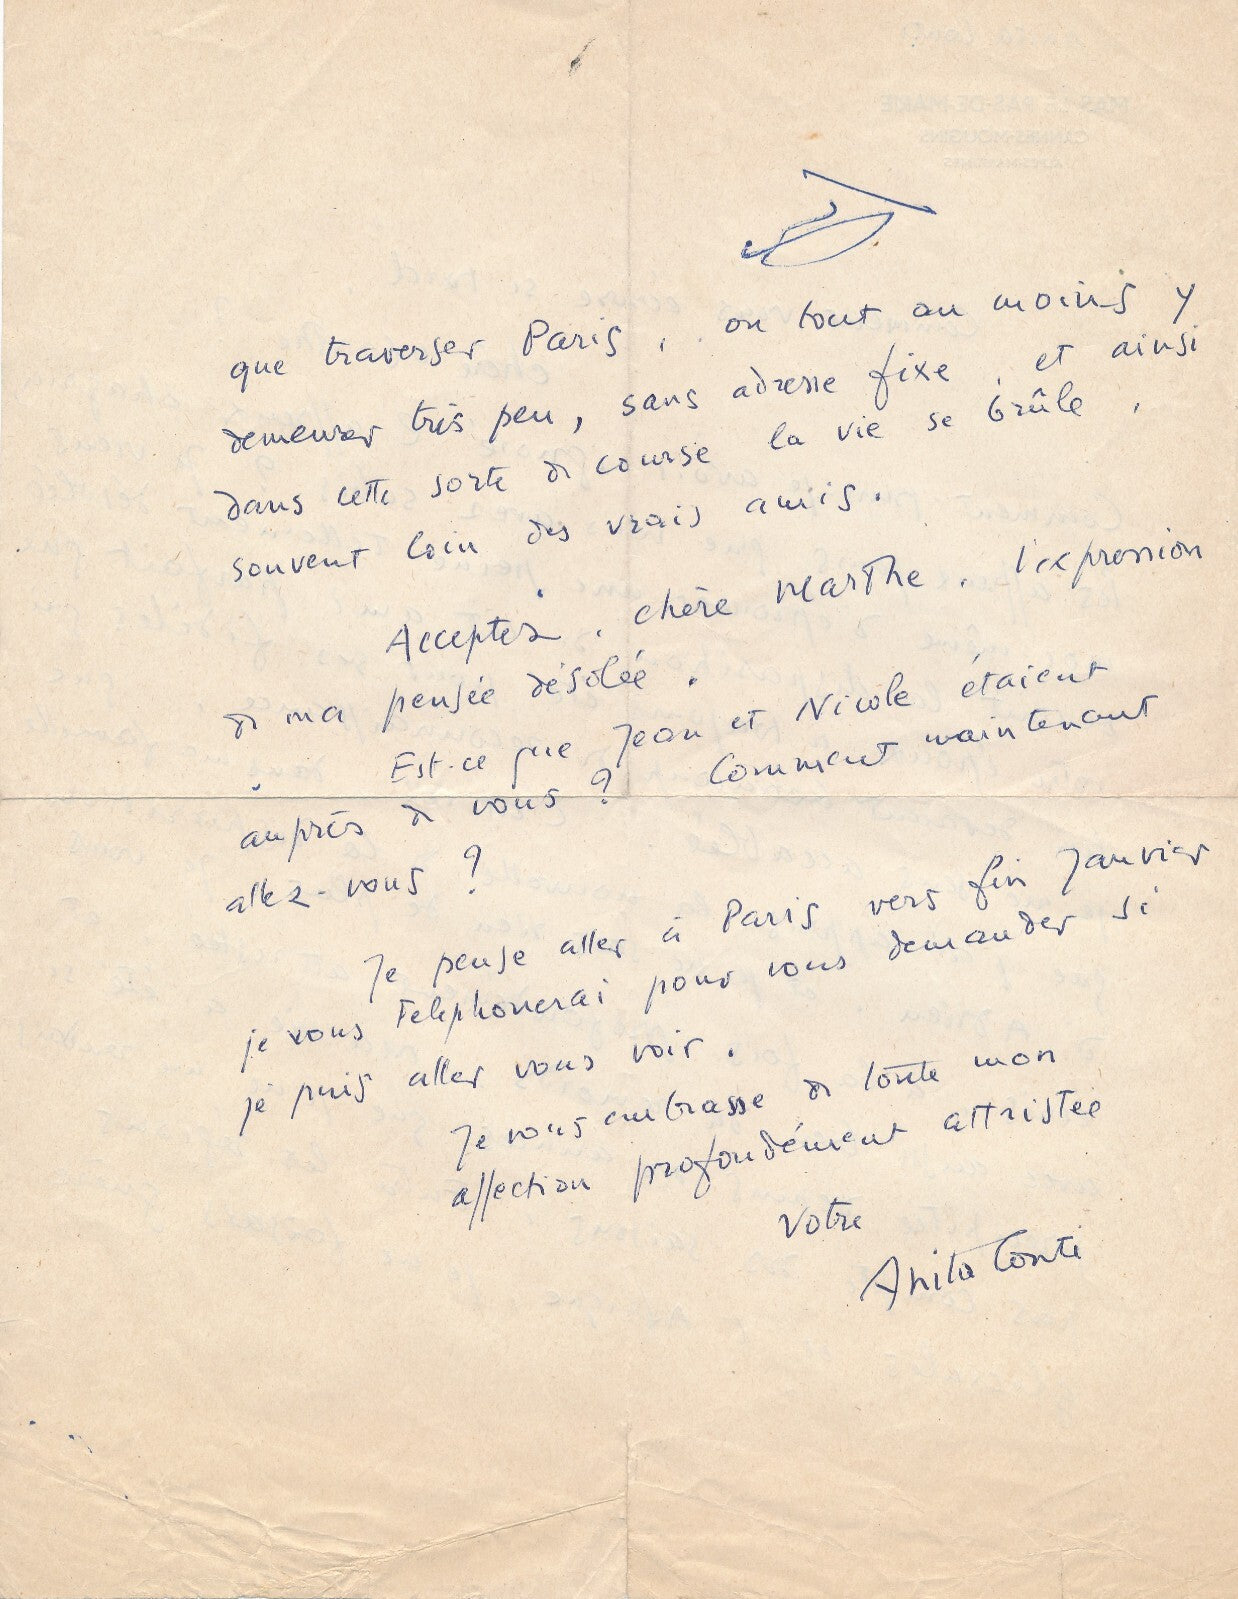 que traverser Paris, ou tout au moins y
demeurer très peu, sans adresse fixe, et ainsi
dans cette sorte de course la vie se brûle,
souvent loin des vrais amis.
Acceptez, chère Marthe, l'expression
de ma pensée désolée.
Est-ce que Jean et Nicole étaient
auprès de vous ? Comment maintenant
allez-vous ?
Je pense aller à Paris vers fin Janvier
je vous telephonerai pour vous demander si
je puis aller vous voir.
Je vous embrasse de toute mon
affection profondément attristée
Votre
Anita Conti